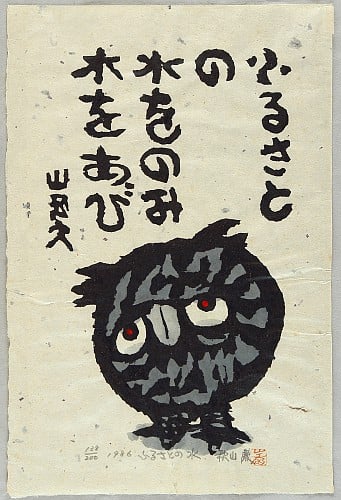 ふるさと
の
水をのみ
水をあび
山頭火
1986 ふるさとの水 秋山巌